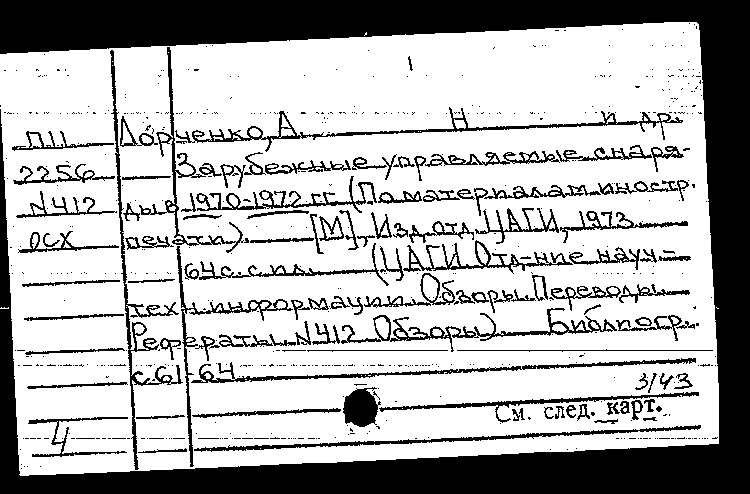 П11 Лорченко, А. Н и др.
2256 Зарубежные управляемые снаря-
N412 ды в 1970-1972 гг. (По материалам иностр.
ОСХ печати). [М], Изд. отд. ЦАГИ, 1973.
64 с. с ил. (ЦАГИ. Отд-ние науч.-
техн. информации. Обзоры. Переводы.
Рефераты. N412 Обзоры). Библиогр.:
с. 61-64
3/43
См. след. карт.
4